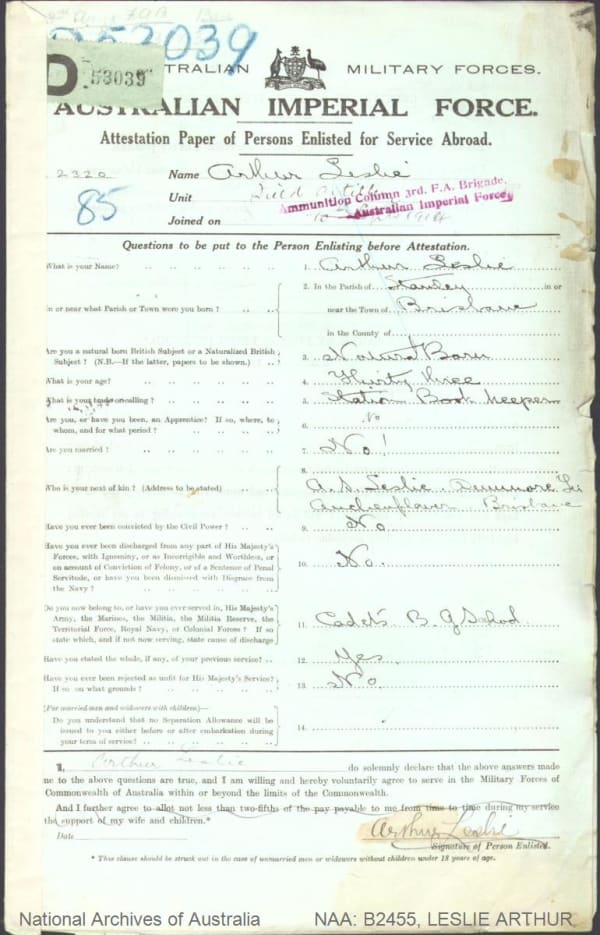 D53039
D 53039
AUSTRALIAN MILITARY FORCES.
AUSTRALIAN IMPERIAL FORCE.
Attestation Paper of Persons Enlisted for Service Abroad.
2320 Name Arthur Leslie
85
Unit Field Artill
Ammunition Column 3rd. F.A. Brigade,
Australian Imperial Force
Joined on
Questions to be put to the Person Enlisting before Attestation.
What is your Name? 1. Arthur Leslie
In or near what Parish or Town were you born? 2. In the Parish of Stanley in or
near the Town of Brisbane
in the County of
Are you a natural born British Subject or a Naturalized British
Subject? (N.B.—If the latter, papers to be shown.) 3. Natural Born
What is your age? 4. Thirty three
What is your trade or calling? 5. Station Book Keeper
Are you, or have you been, an Apprentice? If so, where, to
whom, and for what period? 6. No
Are you married? 7. No!
8.
Who is your next of kin? (Address to be stated) A. S. Leslie Dunmore
Auchenflower Brisbane
Have you ever been convicted by the Civil Power? 9. No
Have you ever been discharged from any part of His Majesty's
Forces, with Ignominy, or as Incorrigible and Worthless, or
on account of Conviction of Felony, or of a Sentence of Penal
Servitude, or have you been dismissed with Disgrace from
the Navy? 10. No.
Do you now belong to, or have you ever served in, His Majesty's
Army, the Marines, the Militia, the Militia Reserve, the
Territorial Force, Royal Navy, or Colonial Forces? If so
state which, and if not now serving, state cause of discharge 11. Cadets B. G School
Have you stated the whole, if any, of your previous service? 12. Yes
Have you ever been rejected as unfit for His Majesty's Service?
If so on what grounds? 13. No
(For married men and widowers with children)—
Do you understand that no Separation Allowance will be
issued to you either before or after embarkation during
your term of service? 14.
I, Arthur Leslie do solemnly declare that the above answers made
me to the above questions are true, and I am willing and hereby voluntarily agree to serve in the Military Forces of
Commonwealth of Australia within or beyond the limits of the Commonwealth.
And I further agree to allot not less than two-fifths of the pay payable to me from time to time during my service
the support of my wife and children.*
Arthur Leslie
Date Signature of Person Enlisted.
* This clause should be struck out in the case of unmarried men or widowers without children under 18 years of age.
National Archives of Australia NAA: B2455, LESLIE ARTHUR